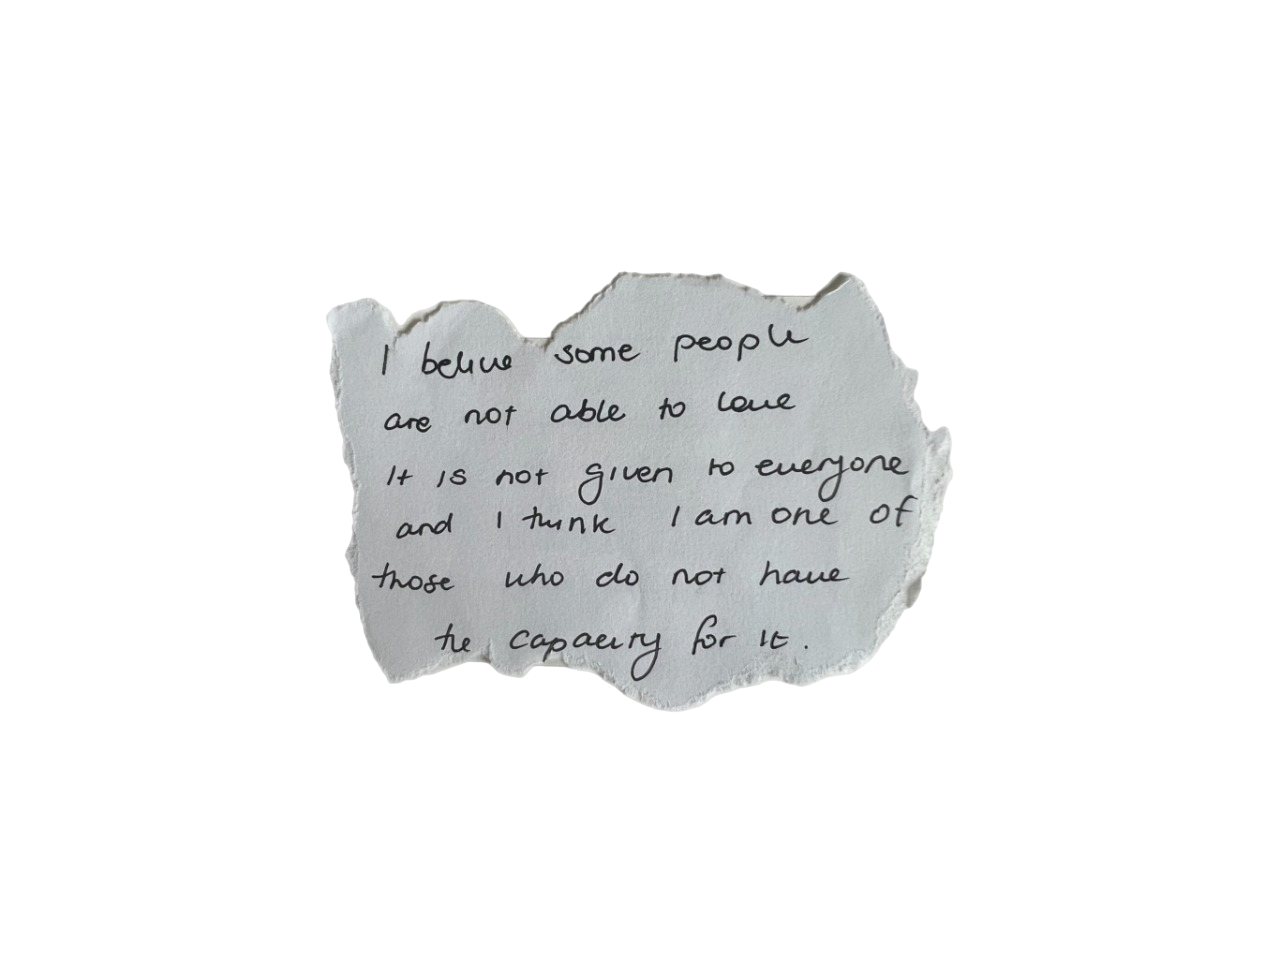 I believe some people
are not able to love
It is not given to everyone
and I think I am one of
those who do not have
the capacity for it.